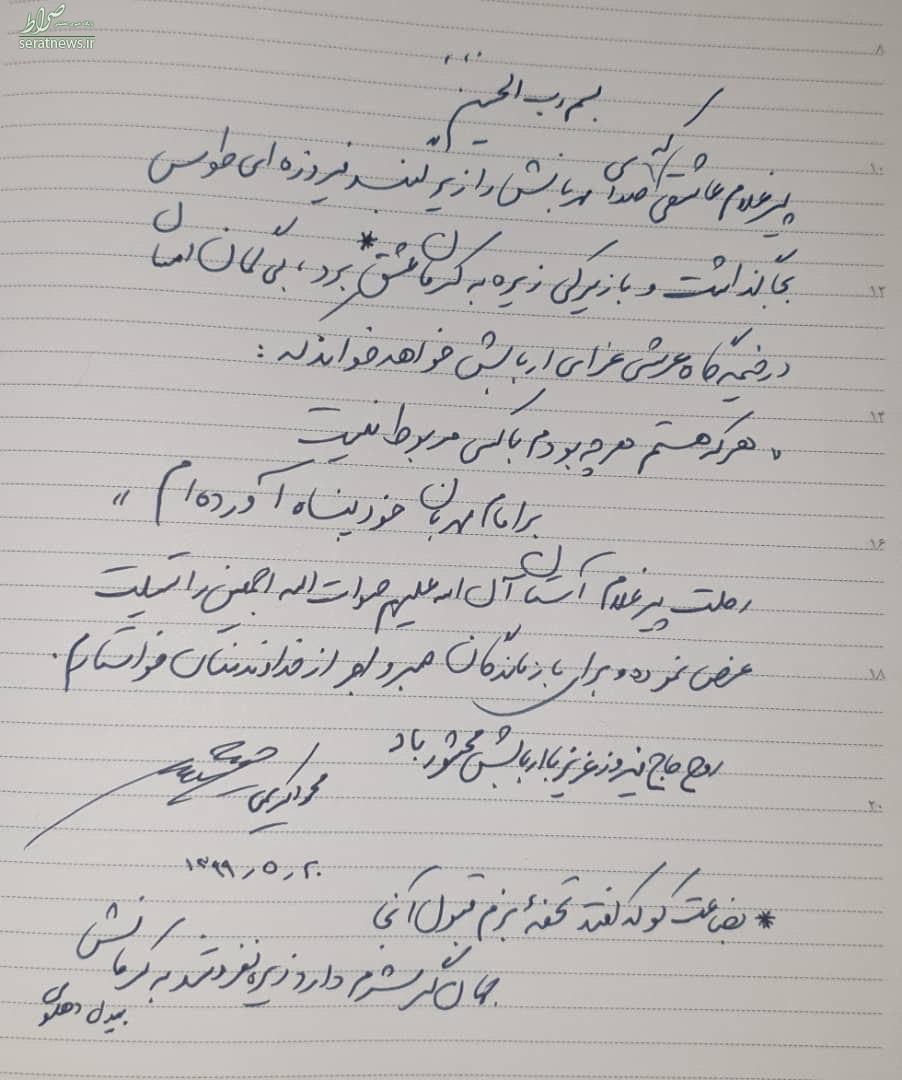 صراط
seratnews.ir
بسم رب الحسین
پیرغلام عاشقی که صدای مهربانش را زیر گنبد فیروزه ای طوس
بجا گذاشت و با زیرکی زیره به کرمان عشق* برد، بی گمان امسال
در خیمه گاه عرشی عزای اربابش خواهد خواند که :
" هر که هستم هر چه بودم با کسی مربوط نیست
بر امام مهربان خود پناه آورده ام "
رحلت پیرغلام آستان آل الله علیهم صلوات الله اجمعین را تسلیت
عرض نموده و برای بازماندگان صبر و اجر از خداوند منان خواستارم.
روح حاج فیروز عزیز با اربابش محشور باد
محمود کریمی
۱۳۹۹٫۵٫۲۰
* بضاعت کو که گفتند تحفهٔ بزم قبول آنجا
همان گر شرم دارد زیره نفروشد به کرمانش
بیدل دهلوی
۸
۱۰
۱۲
۱۴
۱۶
۱۸
۲۰